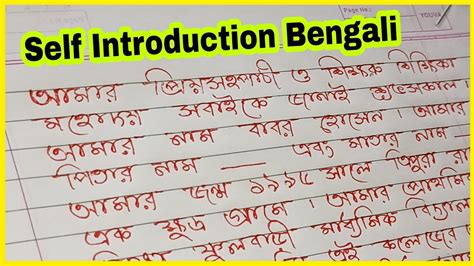 Self Introduction Bengali
Page No.:
YOUVA
আমার প্রিয় সহপাঠী ও শিক্ষক শিক্ষিকা
মহোদয় সবাইকে জানাই শুভসকাল
আমার নাম বাবর হোসেন। আমার
পিতার নাম — এবং মাতার নাম —
আমার জন্ম ১৯৯৫ সালে ত্রিপুরা রা
এক ক্ষুদ্র গ্রামে। আমার প্রাথমি
ফুলবাড়ী মাধ্যমিক বিদ্যাল